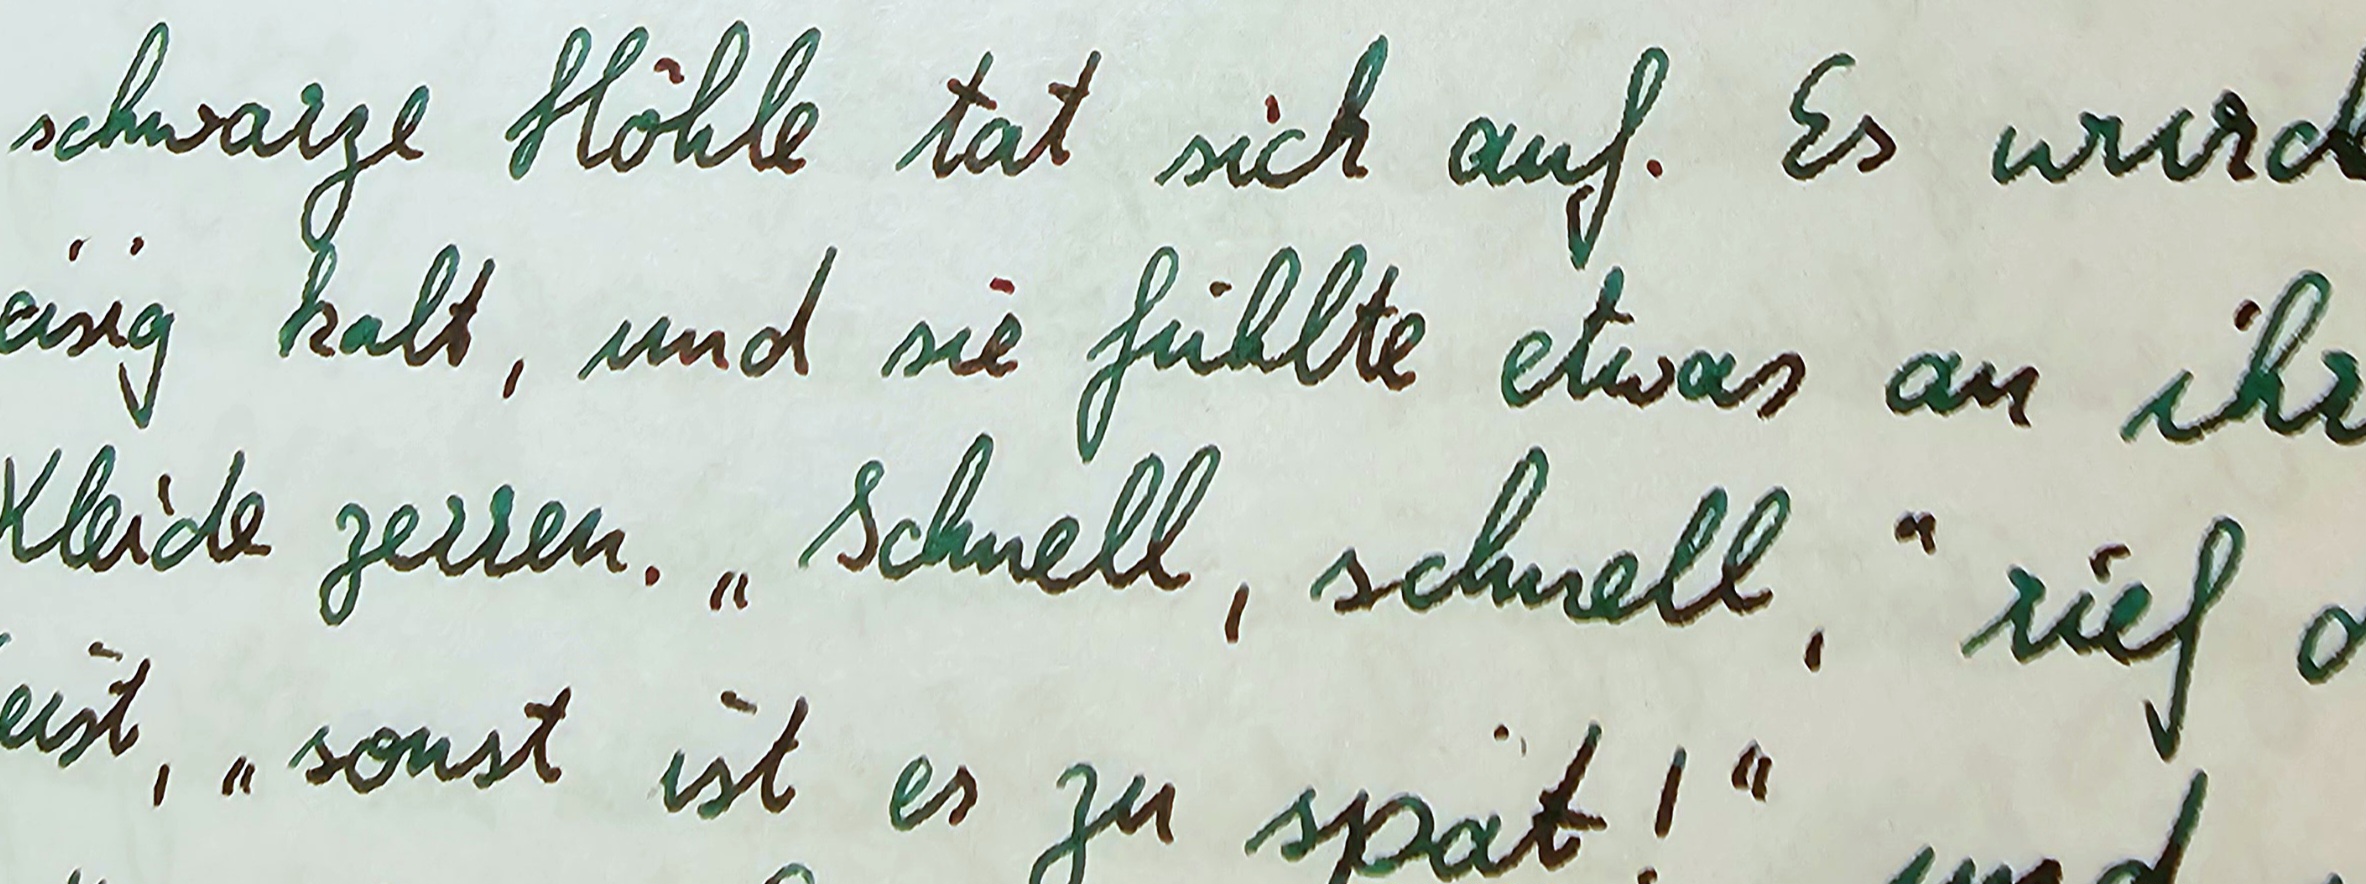 schwarze Höhle tat sich auf. Es wurde
eisig kalt, und sie fühlte etwas an ihr
Kleide zerren. „Schnell, schnell,“ rief d
eist, „sonst ist es zu spät!“
und